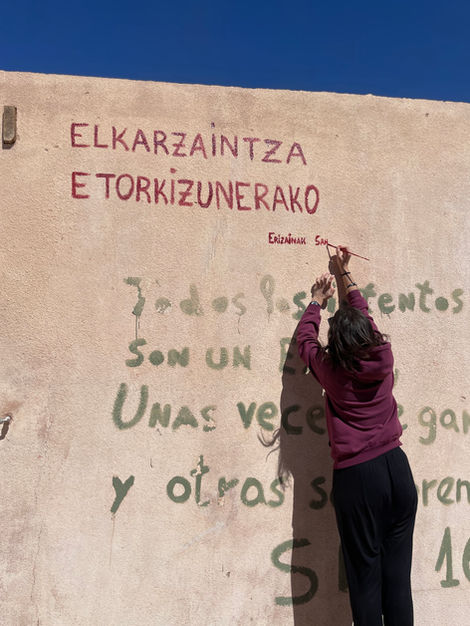 ELKARZAINTZA
ETORKIZUNERAKO
ERIZAINAK SAH
Todos los
SON UN
UNAS vece gan
y otras s pren
S 16